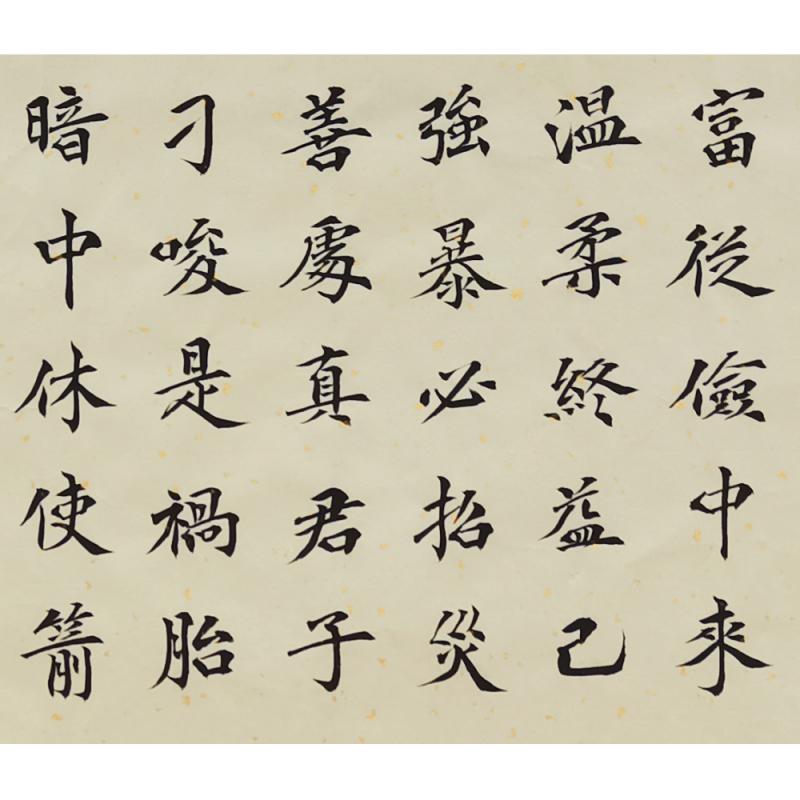 富從儉中來
温柔終益己
強暴必招災
善處真君子
刁唆是禍胎
暗中休使箭